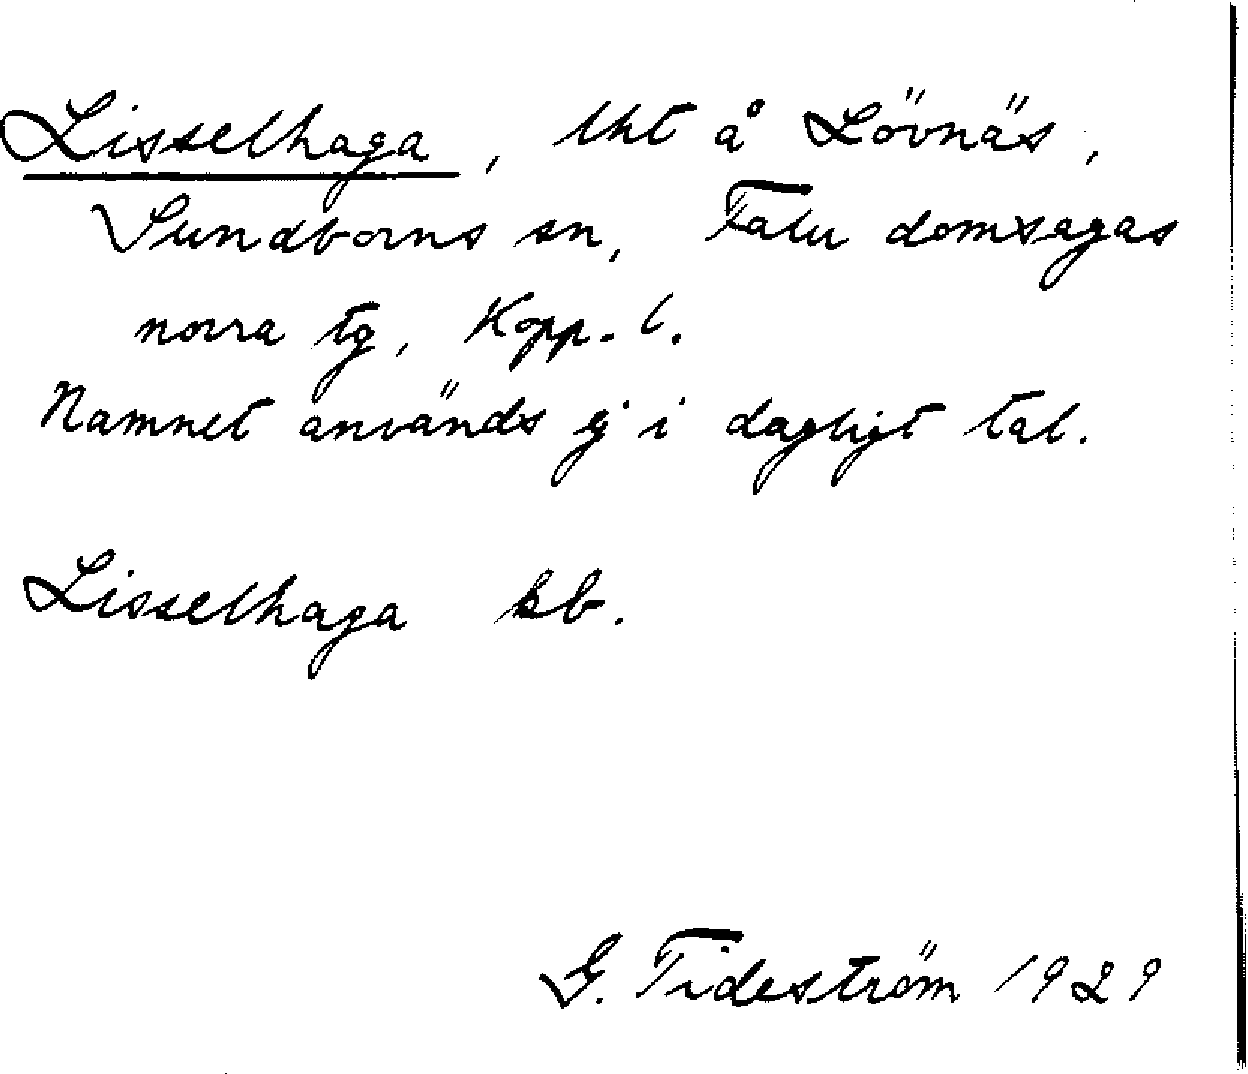 Lisselhaga, lht å Lövnäs,
Sundborns sn, Falu domsagas
norra tg, Kopp. l.
Namnet används ej i dagligt tal.
Lisselhaga kb.
G. Tideström 1929